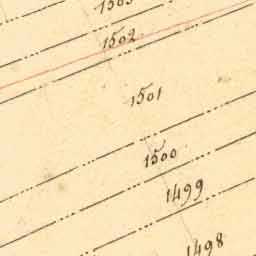 1503
1502
1501
1500
1499
1498